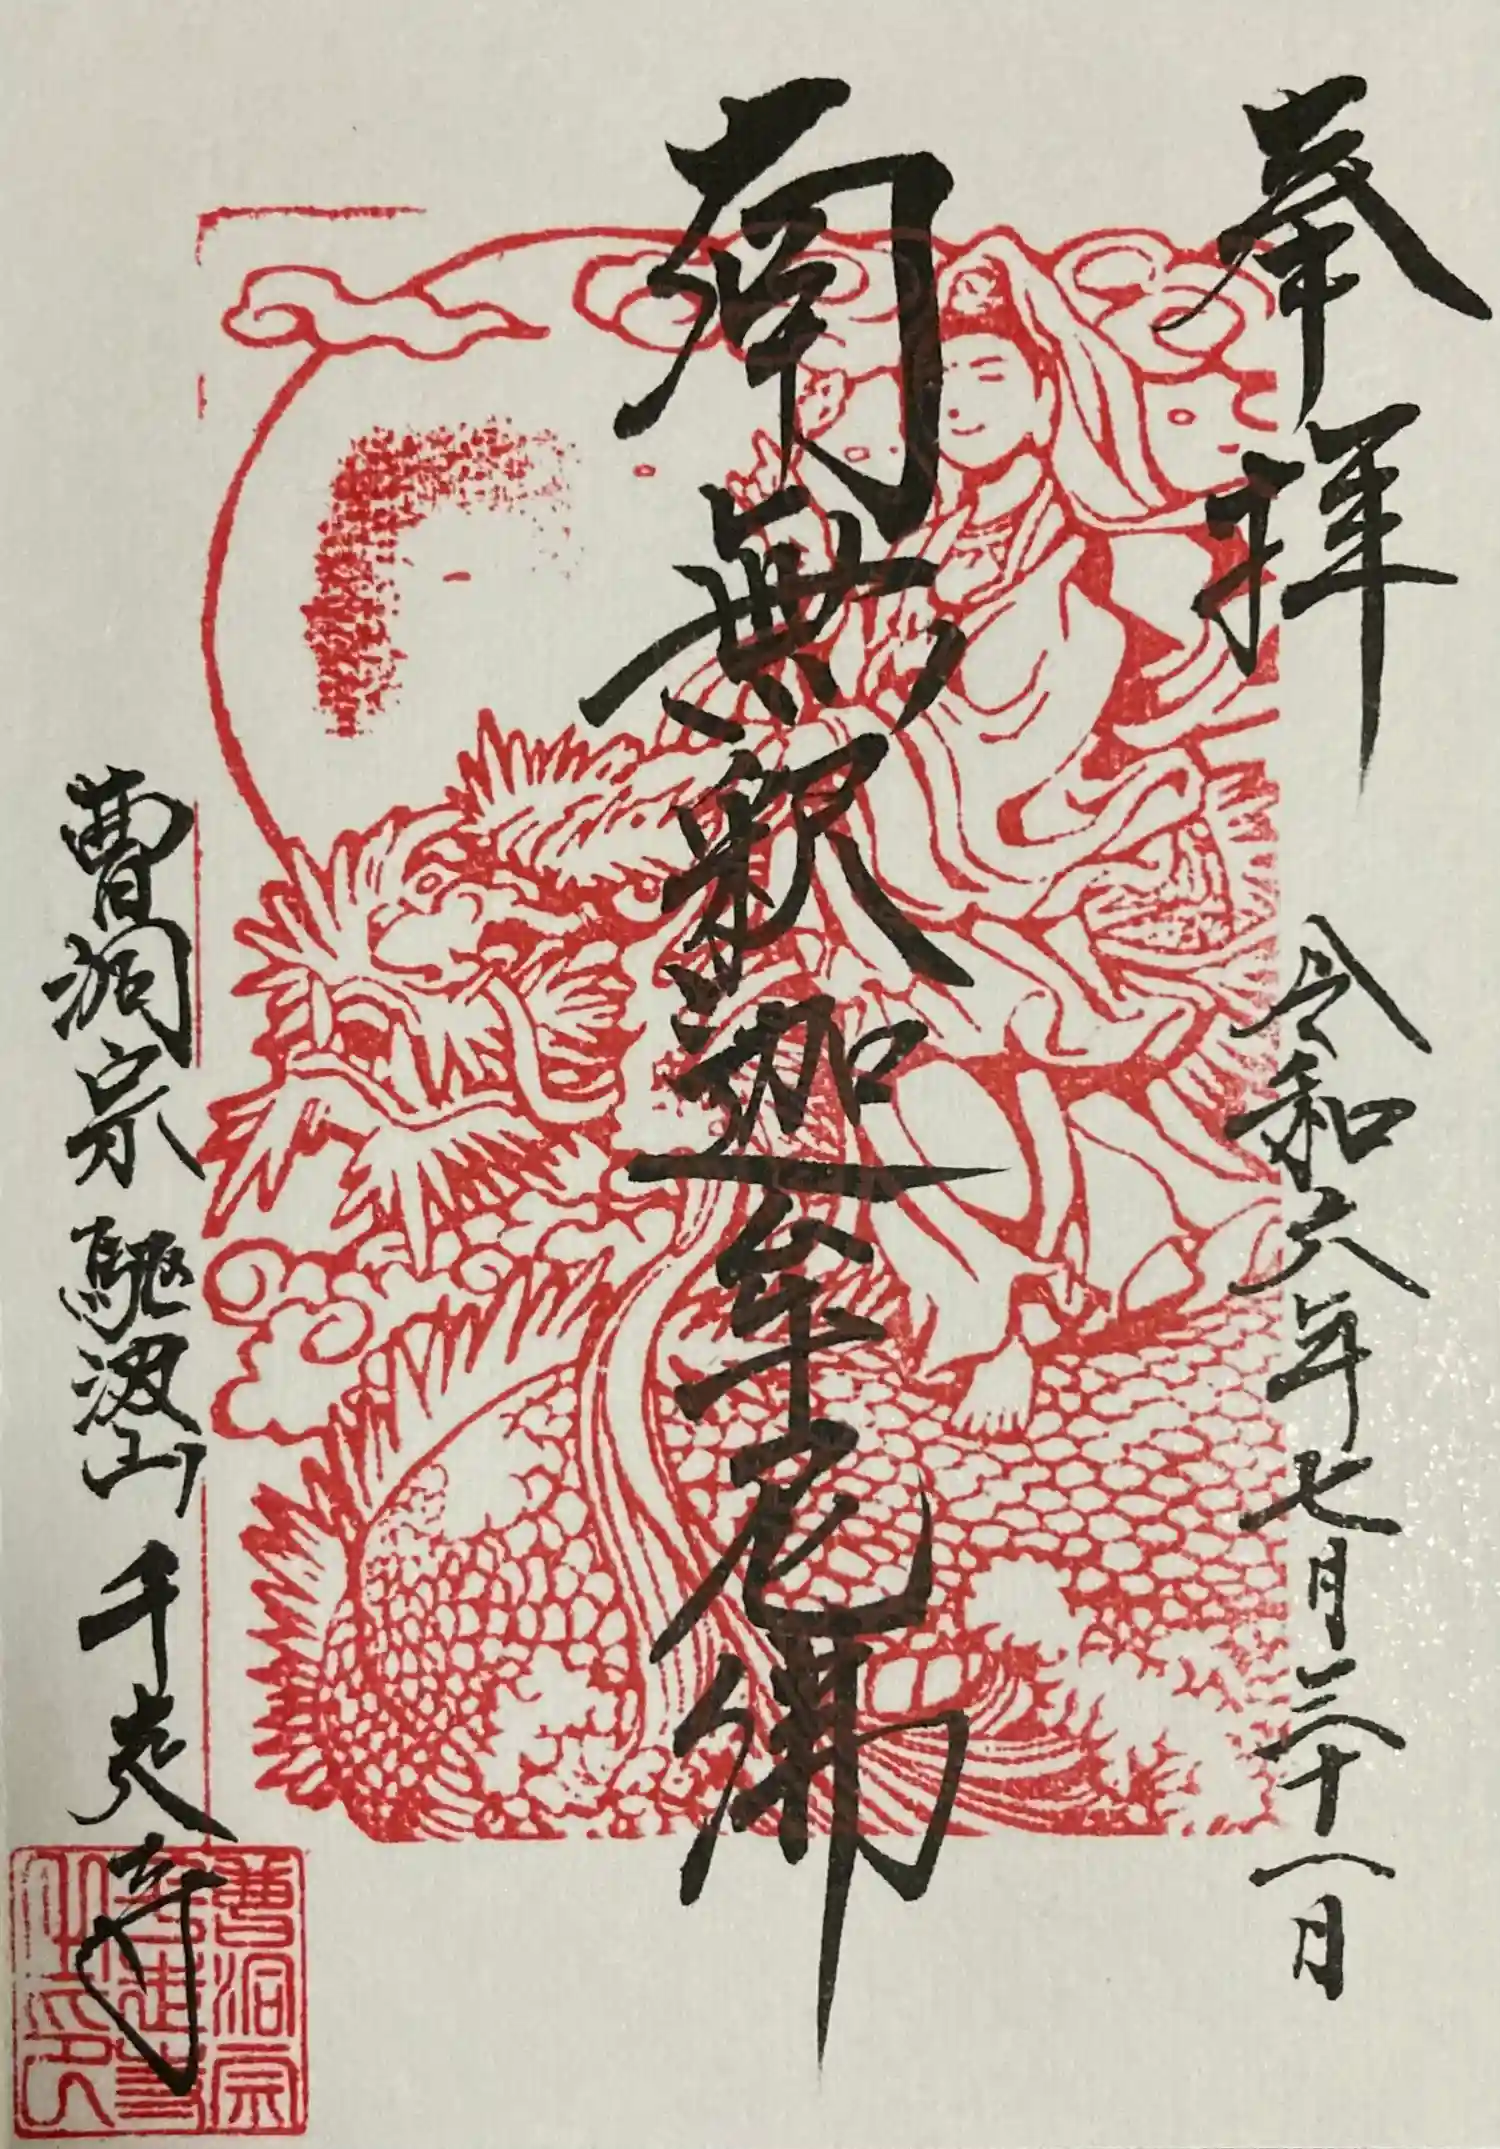 奉拝
令和六年七月三十一日
南無釈迦牟尼佛
曹洞宗 山 寺
曹洞宗
之印